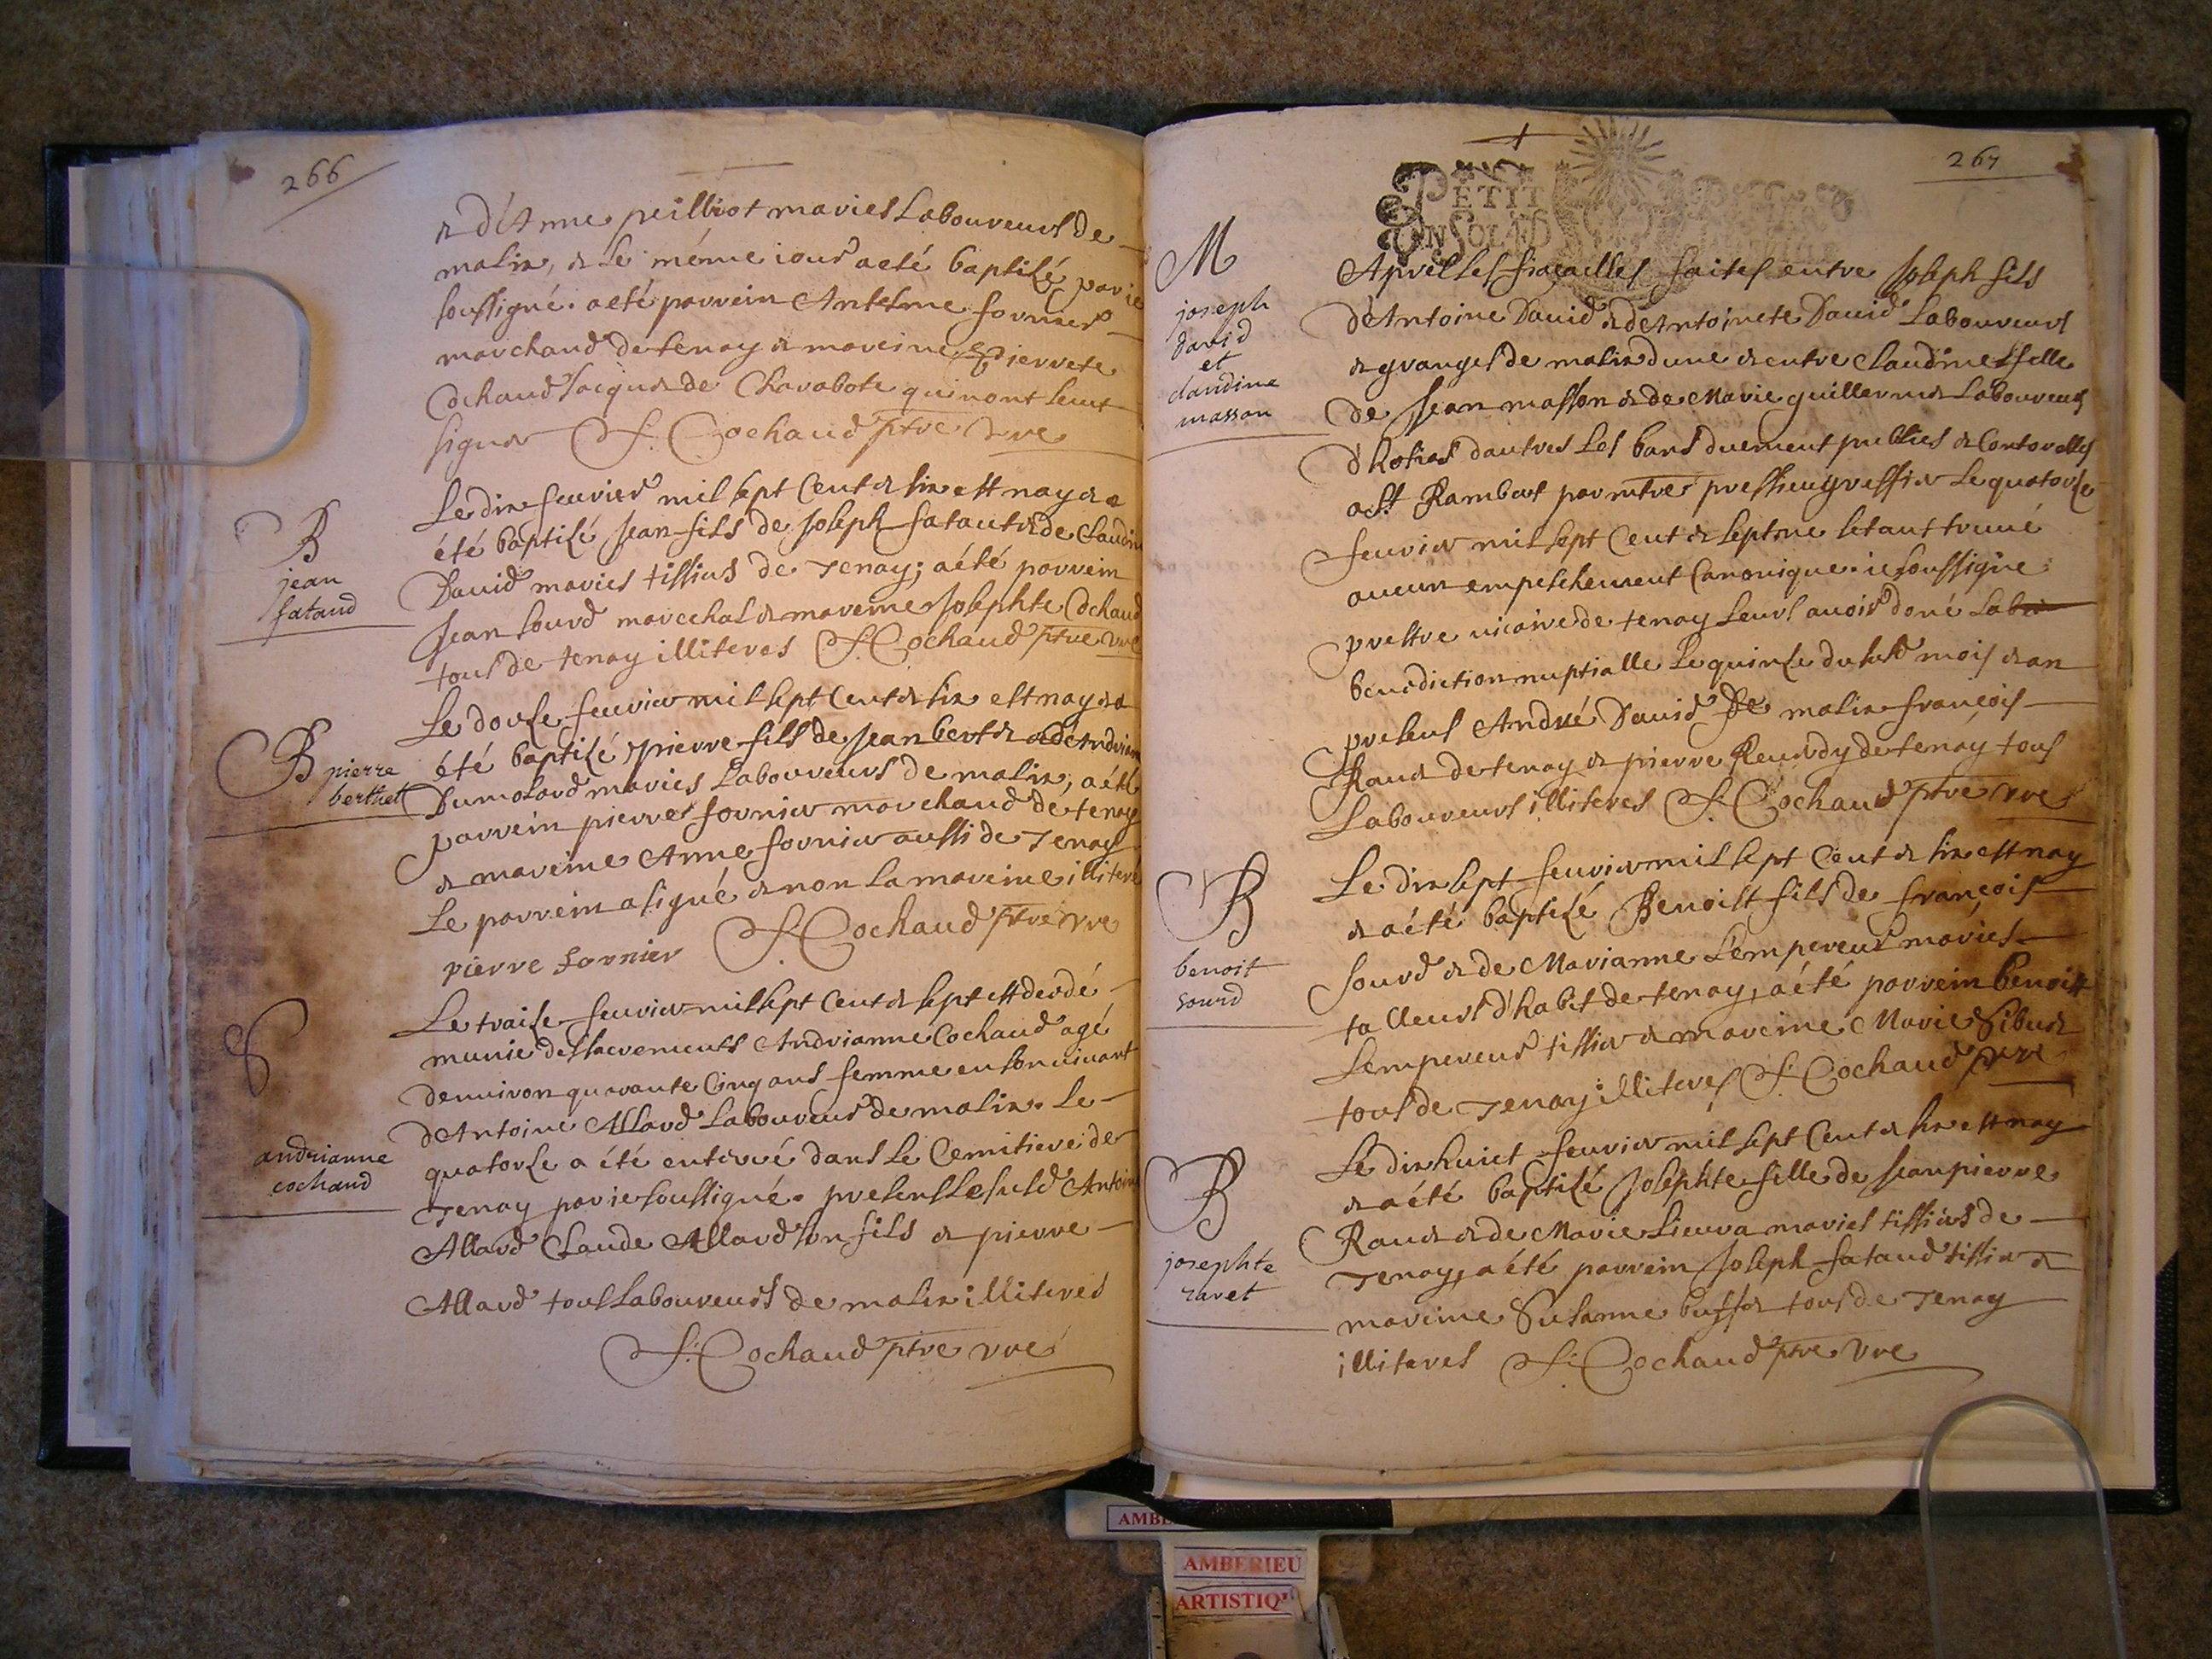 266
& d'Anne peilliot maries Laboureurs de
malix, & le même iour a eté baptisé par ie
soussigné. a eté parrein Antelme fornier
marchand de tenay & mareine pierrete
Cochaud Jacquet de Charabote qui n'ont sceut
signer S. Cochaud ptre vre
B
jean
fataud
Le dix feurier mil sept Cent & six est nay & a
été baptisé Jean fils de Joseph fataut & de Claudine
Dauid maries tissius de Tenay; a été parrein
Jean sourd marechal & mareine Josephte Cochaud
tous de tenay illiteres S. Cochaud ptre vre
B pierre
berthet
Le douze feurier mil sept Cent & six est nay & a
été baptisé pierre fils de Jean bertet & d'Andrianne
Dumolard maries Laboureurs de malix, a été
parrein pierre fornier marchand de tenay
& mareine Anne fornier aussi de Tenay
Le parrein a signé & non la mareine illiteré
pierre fornier S. Cochaud ptre vre
S
andrianne
cochaud
Le traize feurier mil sept Cent & sept est decedé
munie des sacrements Andrianne Cochaud agé
d'enuiron quarante Cinq ans femme en son uiuant
d'Antoine Allard Laboureur de malix. Le
quatorze a été enterré dans le Cemitiere de
Tenay par ie soussigné. presens le susd Antoine
Allard Claude Allard son fils & pierre
Allard tous Laboureurs de malix illiteres
S. Cochaud ptre vre
267
PETIT
UN SOL
M
joseph
david
et
claudine
masson
Apres les fiaçailles faites entre Joseph fils
d'Antoine Dauid & d'Antoinete Dauid Laboureurs
& granges de malix d'une & entre Claudine fille
de Jean masson & de Marie guillermet Laboureurs
d'hosties d'autres les bans duement publies &
a St Rambert par mtre pressieu greffier Le quatorze
feurier mil sept Cent & sept ne s'etant trouué
aucun empeschement Canonique. ie soussigne
prestre uicaire de tenay leurs auois doné la
benediction nuptialle Le quinze dususd mois & an
presens André Dauid de malix françois
Rauet de tenay & pierre Reuerdy de tenay tous
Laboureurs illiteres S. Cochaud ptre vre
B
benoit
sourd
Le dix sept feurier mil sept Cent & six est nay
& a été baptisé Benoist fils de françois
sourd & de Marianne L'empereur maries
talleurs d'habit de tenay, a été parrein benoist
Lempereur tissier & mareine Marie Sibuet
tous de Tenay illiteres S. Cochaud ptre vre
B
josephte
ravet
Le dix huict feurier mil sept Cent & six est nay
& a été baptisé Josephte fille de Jean pierre
Rauet & de Marie Lieura maries tissiers de
Tenay, a été parrein Joseph fataud tissier &
mareine Susanne buffet tous de Tenay
illiteres S. Cochaud ptre vre
AMBE
AMBERIEU
ARTISTIQU